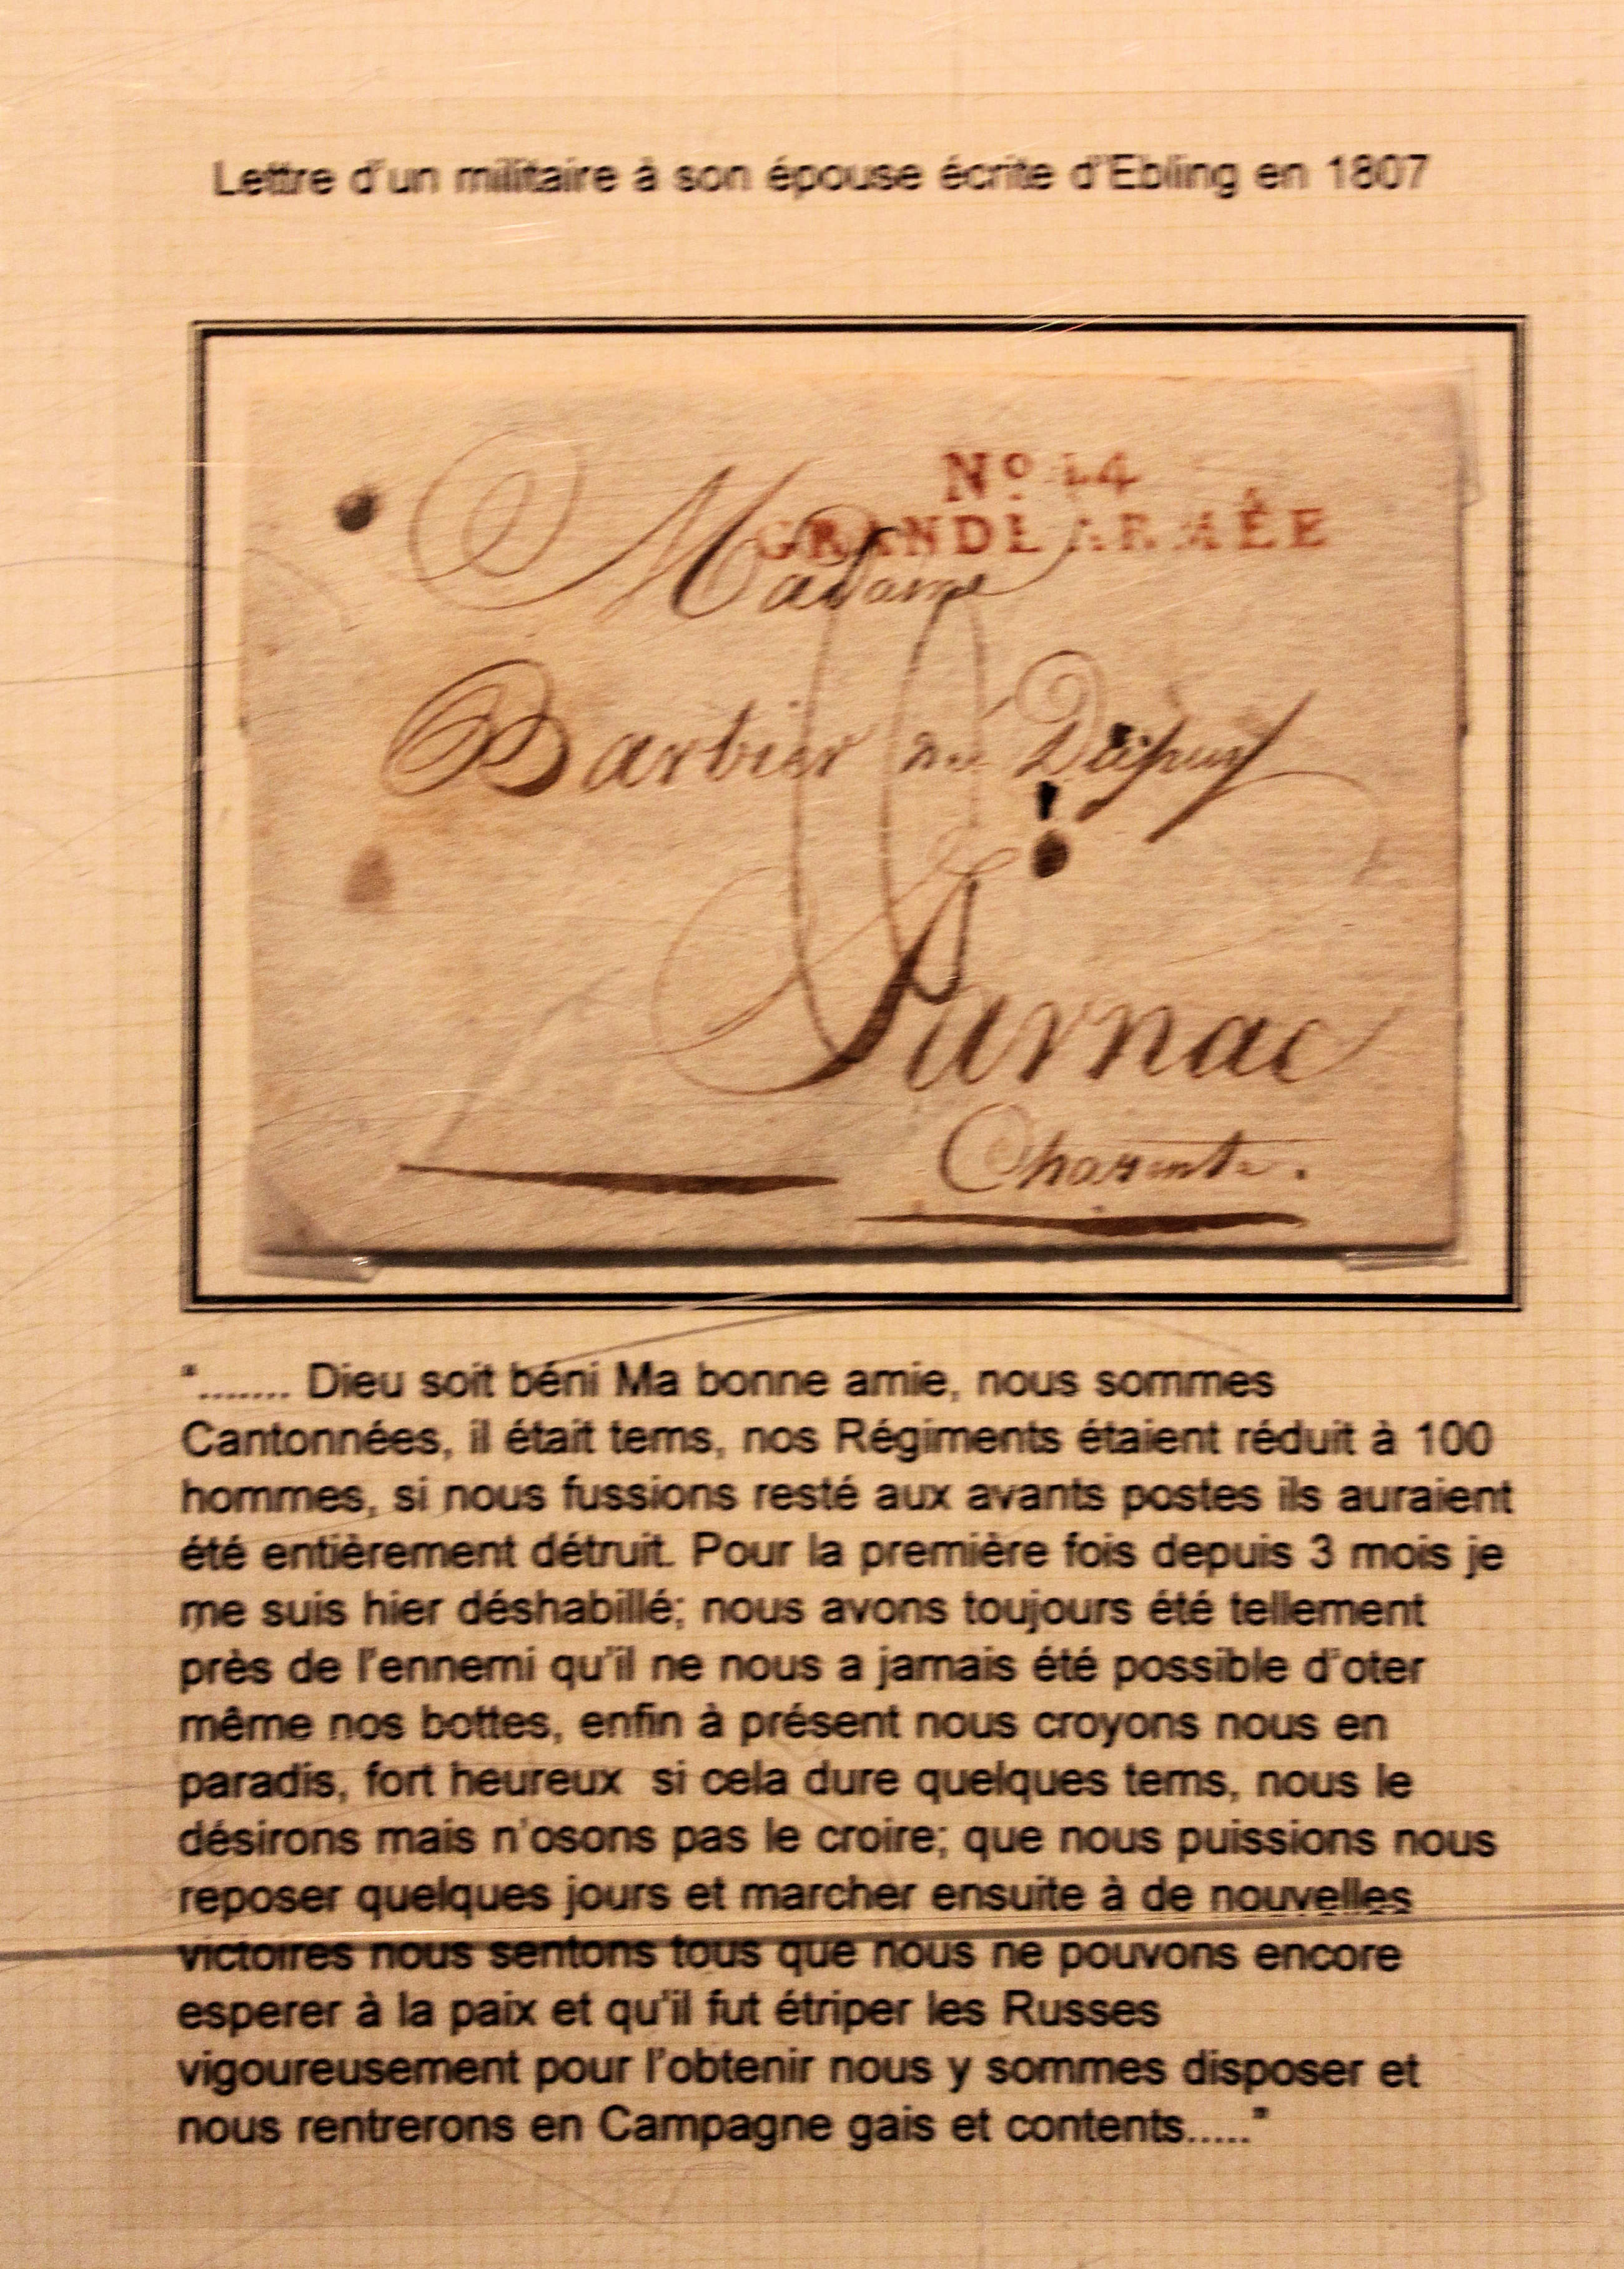 Lettre d'un militaire à son épouse écrite d'Ebling en 1807
No 14
GRANDE ARMÉE
Madame
Barbier née Dupuy
Jarnac
Charente.
"....... Dieu soit béni Ma bonne amie, nous sommes
Cantonnées, il était tems, nos Régiments étaient réduit à 100
hommes, si nous fussions resté aux avants postes ils auraient
été entièrement détruit. Pour la première fois depuis 3 mois je
me suis hier déshabillé; nous avons toujours été tellement
près de l'ennemi qu'il ne nous a jamais été possible d'oter
même nos bottes, enfin à présent nous croyons nous en
paradis, fort heureux si cela dure quelques tems, nous le
désirons mais n'osons pas le croire; que nous puissions nous
reposer quelques jours et marcher ensuite à de nouvelles
victoires nous sentons tous que nous ne pouvons encore
esperer à la paix et qu'il fut étriper les Russes
vigoureusement pour l'obtenir nous y sommes disposer et
nous rentrerons en Campagne gais et contents....."